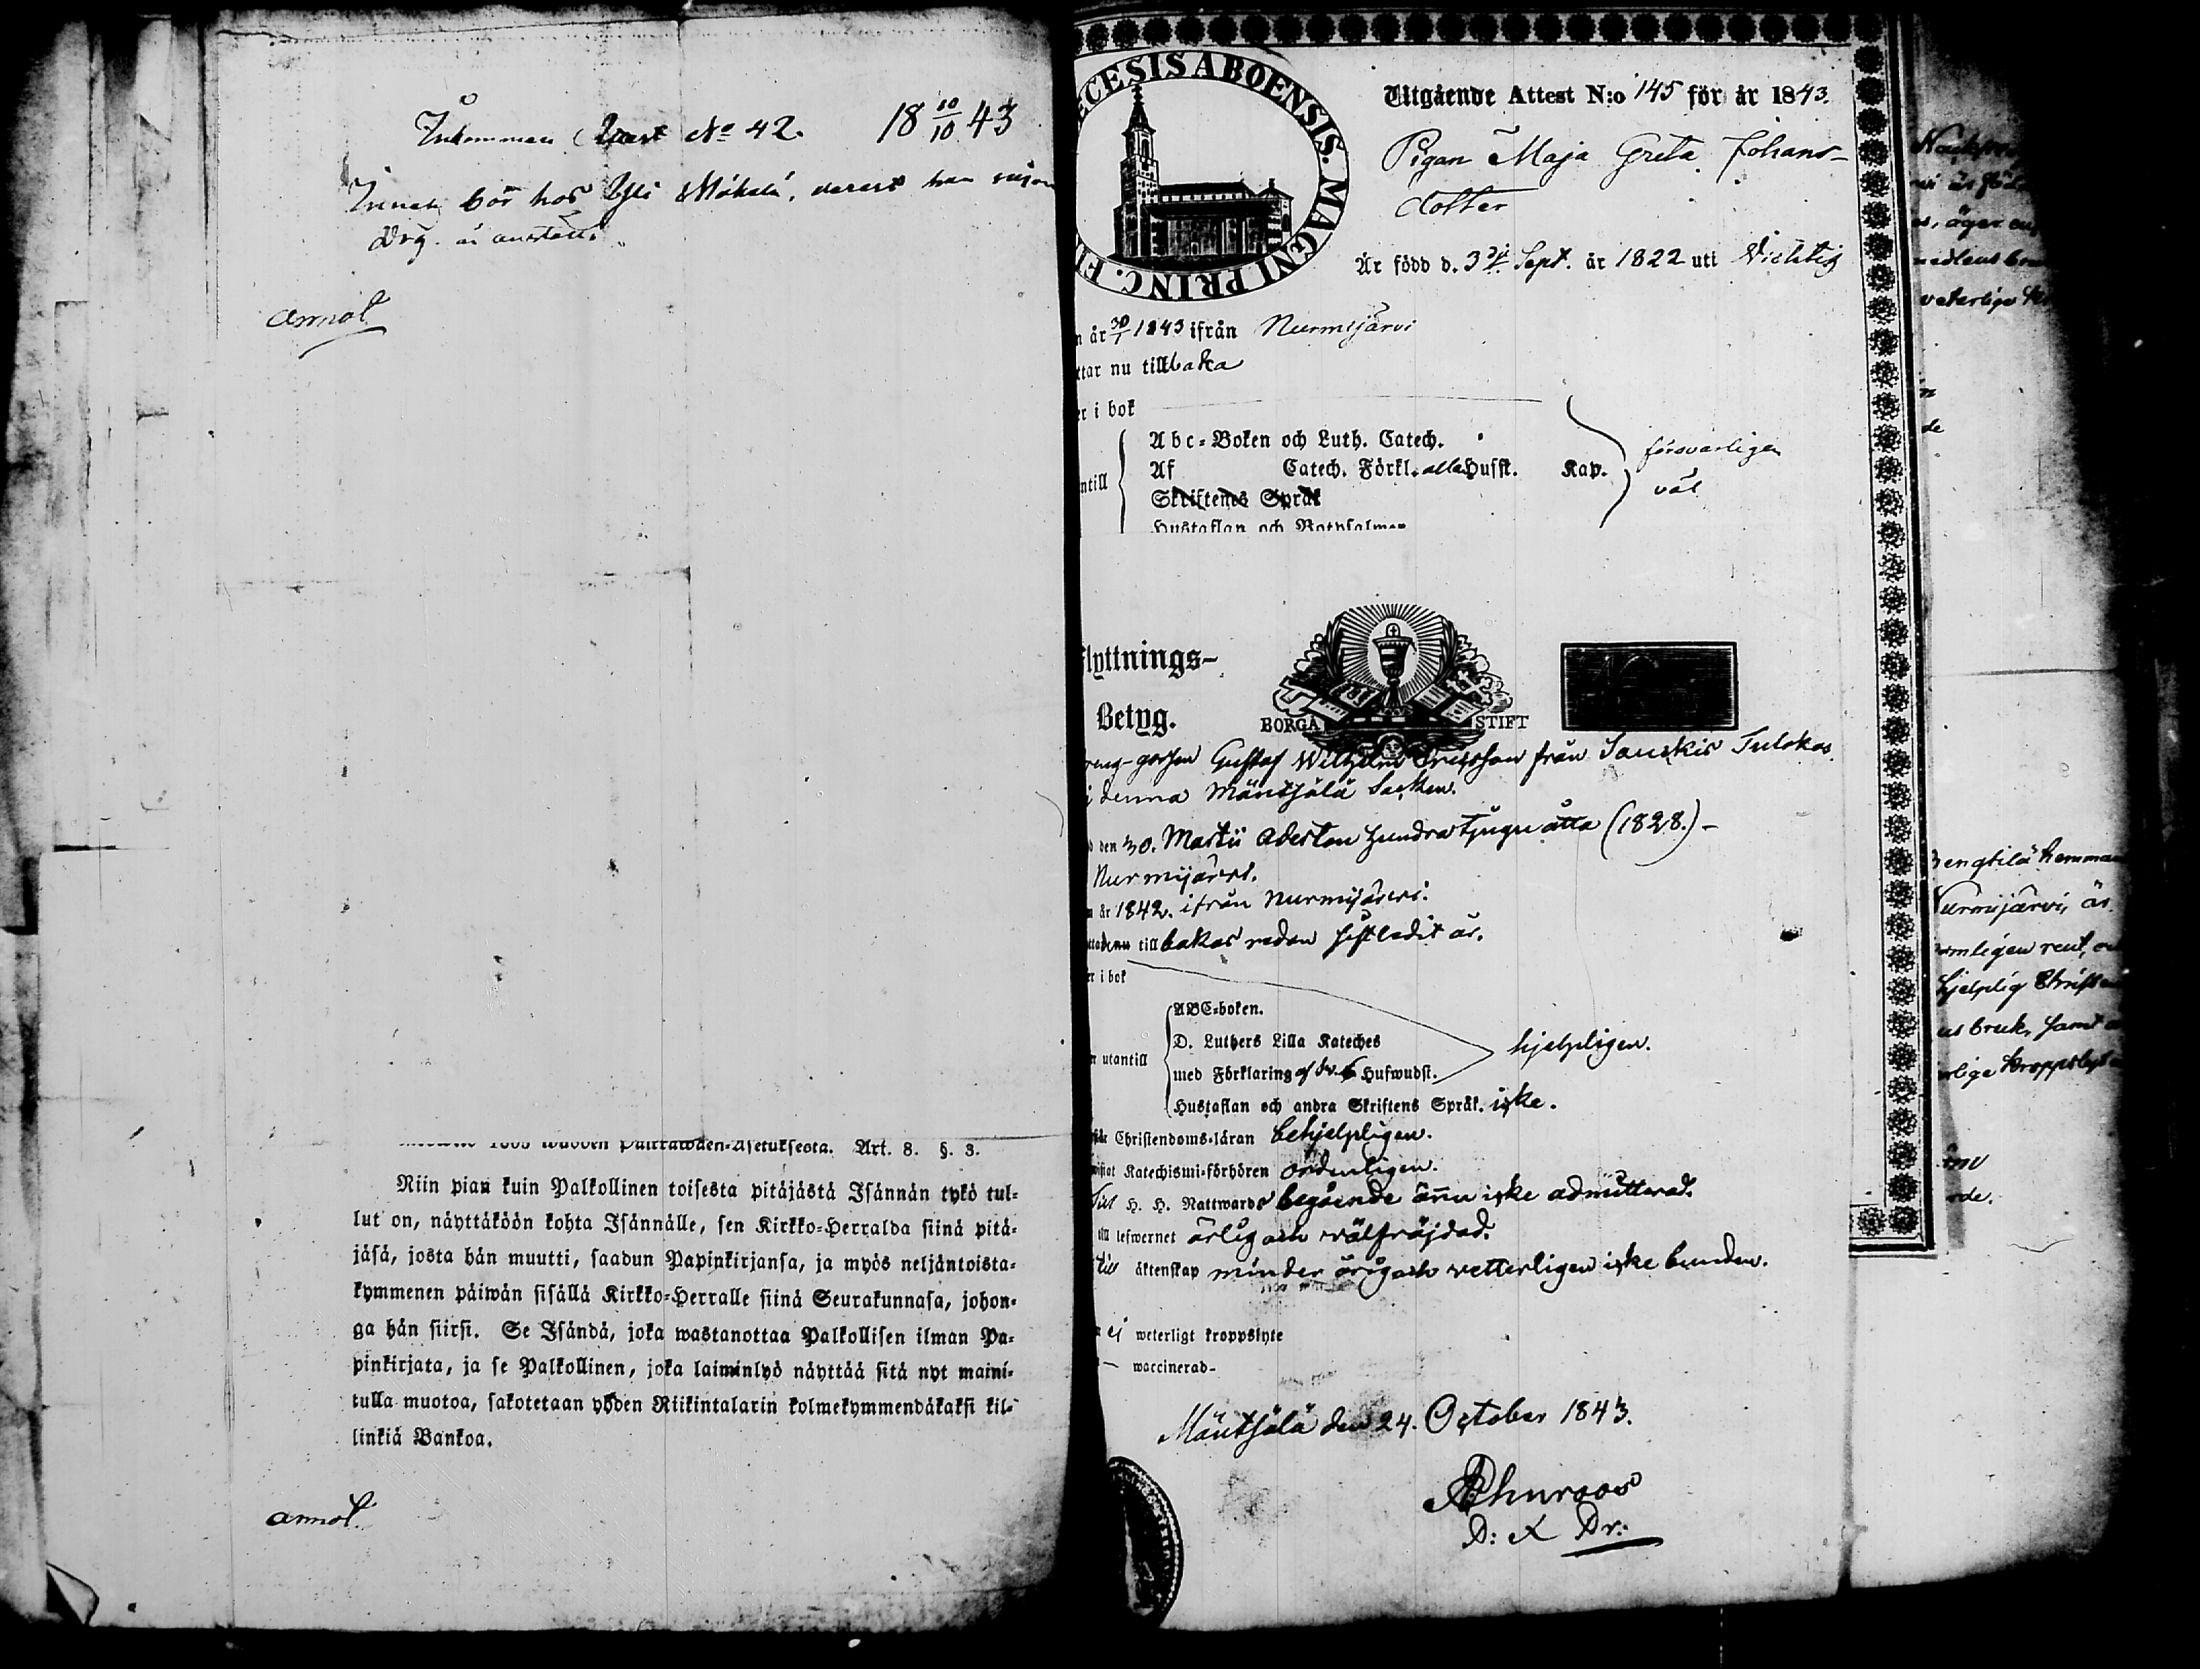 Inkommen Attest No 42. 18 10/10 43
bör hos Yli Mökelä, varest han som
Drg. är anstäld.
annot.
Art. 8. §. 3.
Niin pian kuin Palkollinen toisesta pitäjästä Isännän tykö tul-
lut on, näyttäköön kohta Isännälle, sen Kirkko-Herralda siinä pitä-
jäsä, josta hän muutti, saadun Papinkirjansa, ja myös neljäntoista-
kymmenen päiwän sisällä Kirkko-Herralle siinä Seurakunnasa, johon-
ga hän siirsi. Se Isändä, joka wastanottaa Palkollisen ilman Pa-
pinkirjata, ja se Palkollinen, joka laiminlyö näyttää sitä nyt maini-
tulla muotoa, sakotetaan yhden Riikintalarin kolmekymmendäkaksi kil-
linkiä Bankoa.
annot.
ECESIS ABOENSIS. MAGNI PRINC. FI
Utgående Attest N:o 145 för år 1843.
Pigan Maja Greta Johans-
dotter
Är född d. 3dj Sept. år 1822 uti Vichtis
år 30/1 1843 ifrån Nurmijärvi
ttar nu tillbaka
er i bok
Abc-Boken och Luth. Catech.
Af Catech. Förkl. alla Hufst. Kap. försvarligen
ntill väl
Skriftenes Språk
Hustaflan och Botpsalmer
flyttnings-
Betyg.
BORGÅ STIFT
reng-gossen Gustaf Wilhelm Ericsson från Sauskis Tulokas
i denna Mäntsälä Socken.
den 30. Martii Aderton hundra tjugu åtta (1828.) -
Nurmijärvi.
n år 1842. ifrån Nurmijärvi.
tade nu till bakas redan sistledit år.
er i bok
ABC-boken.
D. Luthers Lilla Kateches hjelpligen.
r utantill
med Förklaring af de 6 Hufwudst.
Hustaflan och andra Skriftens Språk. icke.
står Christendoms-läran behjelpligen.
wistat Katechismi-förhören ordentligen.
Till H. H. Nattwards begående ännu icke admitterad.
till lefwernet ärlig och välfräjdad.
till äktenskap minderårig och vetterligen icke bunden.
ej weterligt kroppslyte
waccinerad-
Mäntsälä den 24. October 1843.
D: Dr:
äger
vaterliga
de
Bengtilä hemman
Nurmijärvi, är
omligen rent,
hjelplig
us bruk, samt
rliga kroppslyte
rde.